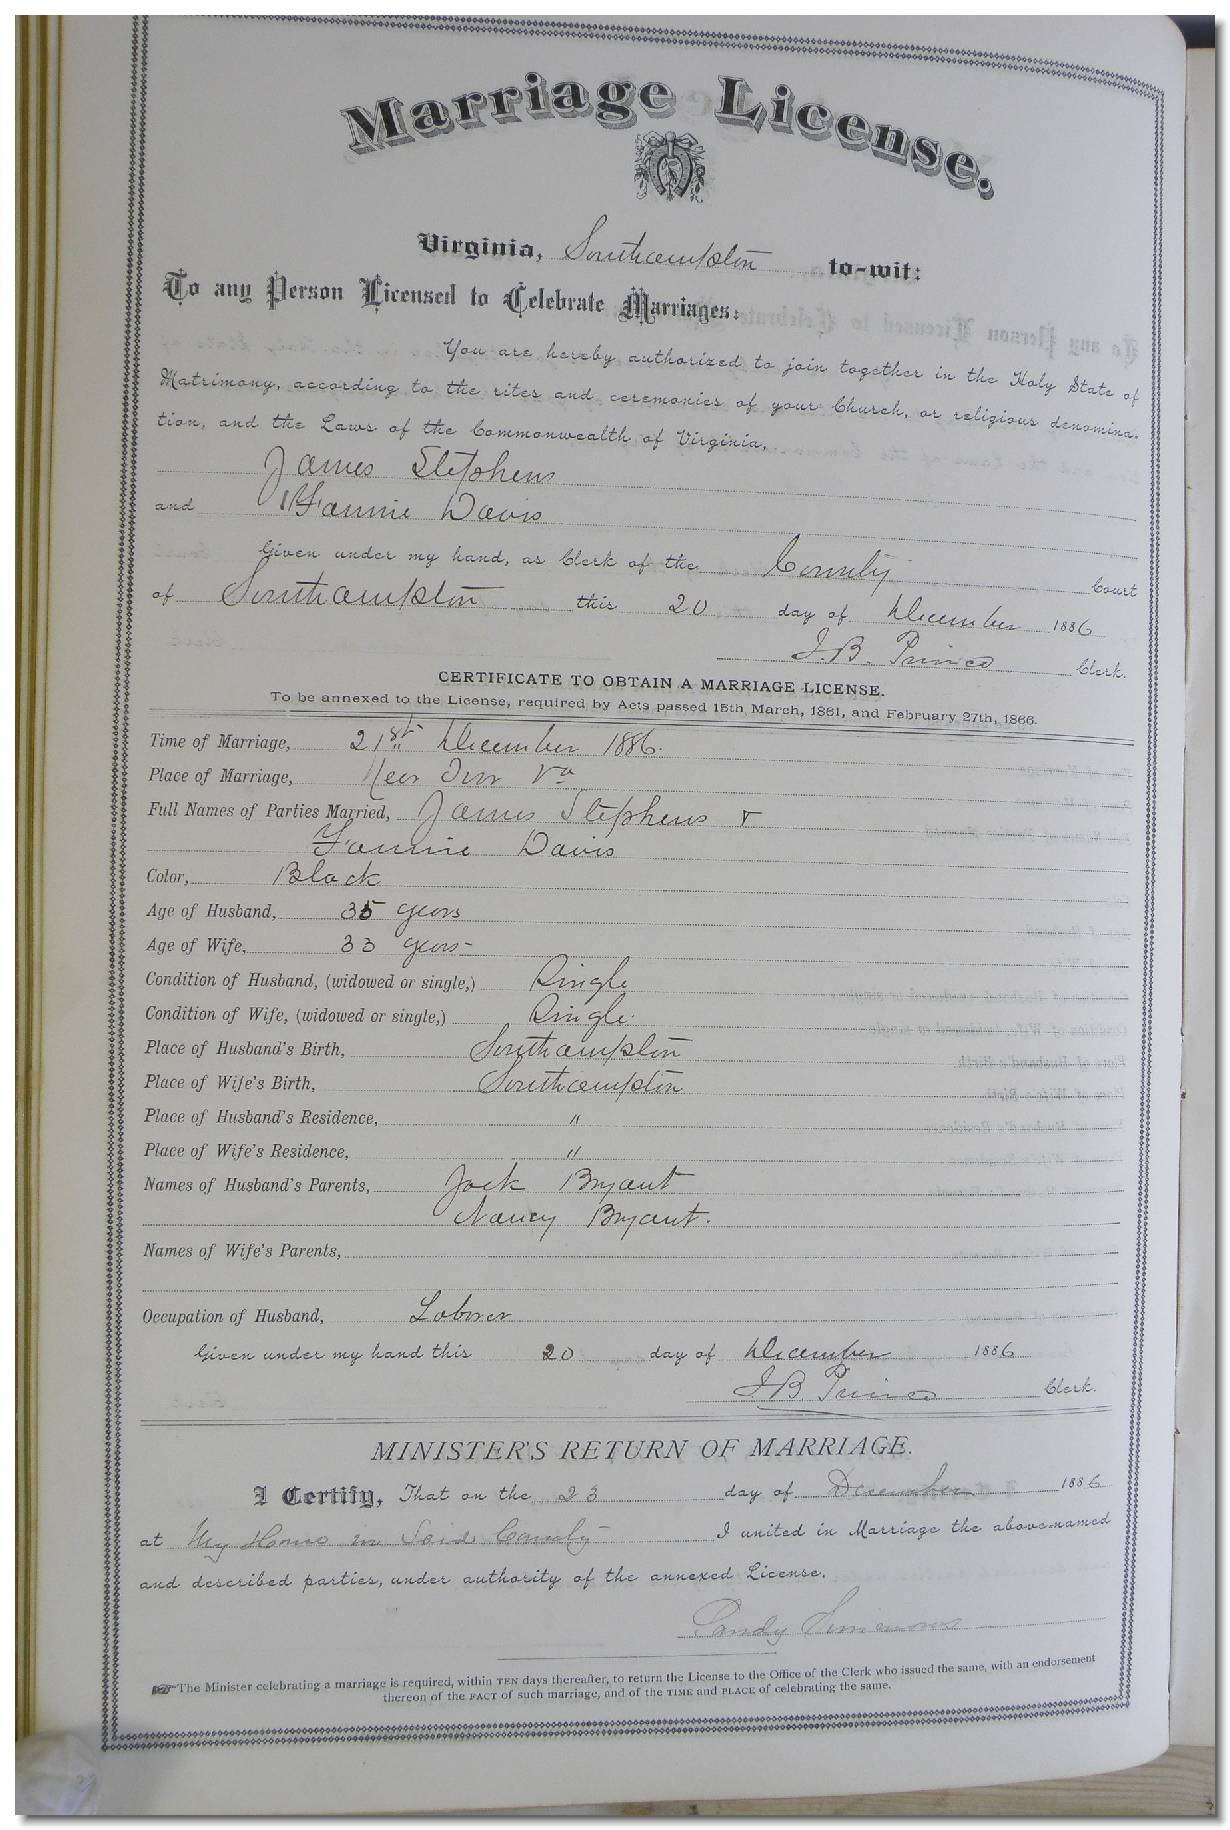 Marriage License.
Virginia, Southampton to-wit:
To any Person Licensed to Celebrate Marriages:
You are hereby authorized to join together in the Holy State of
Matrimony, according to the rites and ceremonies of your Church, or religious denomina-
tion, and the Laws of the Commonwealth of Virginia,
James Stephens
and Fannie Davis
Given under my hand, as Clerk of the County Court
of Southampton this 20 day of December 1886
J. B. Prince Clerk.
CERTIFICATE TO OBTAIN A MARRIAGE LICENSE.
To be annexed to the License, required by Acts passed 15th March, 1861, and February 27th, 1866.
Time of Marriage, 21st December 1886.
Place of Marriage, Near Va
Full Names of Parties Married, James Stephens &
Fannie Davis
Color, Black
Age of Husband, 35 years
Age of Wife, 33 years
Condition of Husband, (widowed or single,) Single
Condition of Wife, (widowed or single,) Single
Place of Husband's Birth, Southampton
Place of Wife's Birth, Southampton
Place of Husband's Residence, "
Place of Wife's Residence, "
Names of Husband's Parents, Jack Bryant
Nancy Bryant.
Names of Wife's Parents,
Occupation of Husband, Laborer
Given under my hand this 20 day of December 1886
J B Prince Clerk.
MINISTER'S RETURN OF MARRIAGE.
I Certify, That on the 23 day of December 1886
at My Home in Said County I united in Marriage the above-named
and described parties, under authority of the annexed License.
Simmons
The Minister celebrating a marriage is required, within TEN days thereafter, to return the License to the Office of the Clerk who issued the same, with an endorsement
thereon of the FACT of such marriage, and of the TIME and PLACE of celebrating the same.